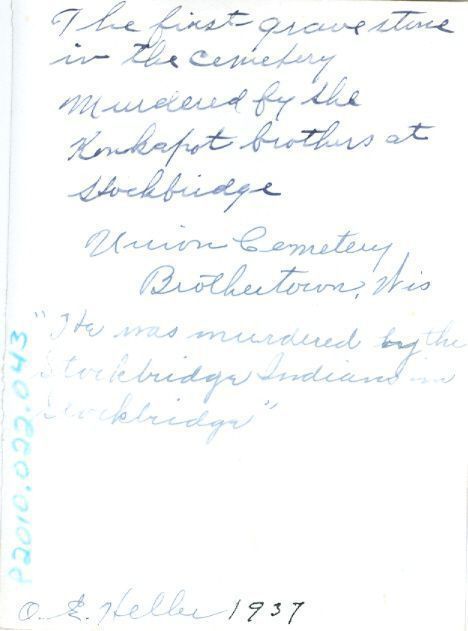 The first gravestone
in the cemetery
Murdered by the
Konkapot brothers at
Stockbridge
Union Cemetery,
Brothertown, Wis
"He was murdered by the
Stockbridge Indians in
Stockbridge"
P2010.022.043
O. E. Heller 1937